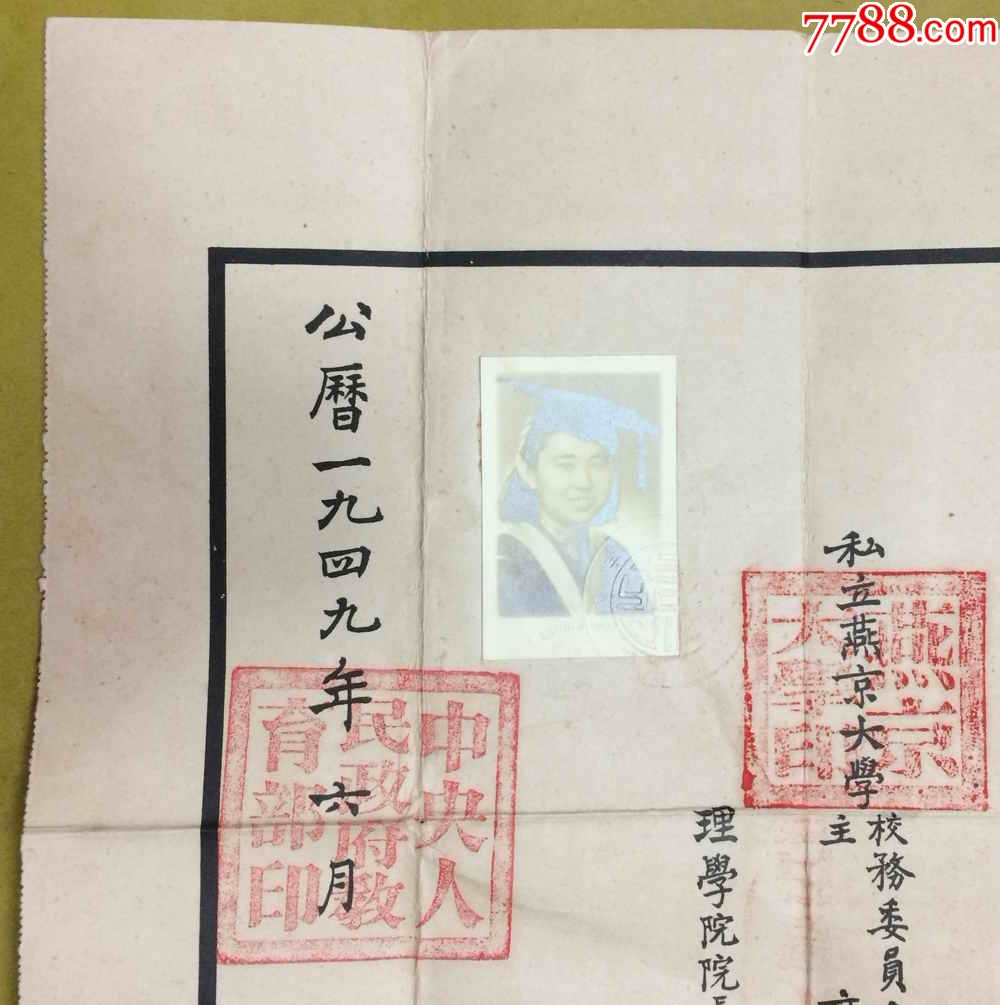 7788.com
私立燕京大學
校務委員
主
理學院院
公曆一九四九年六月
燕京
大學印
中央人
民政府教
育部印